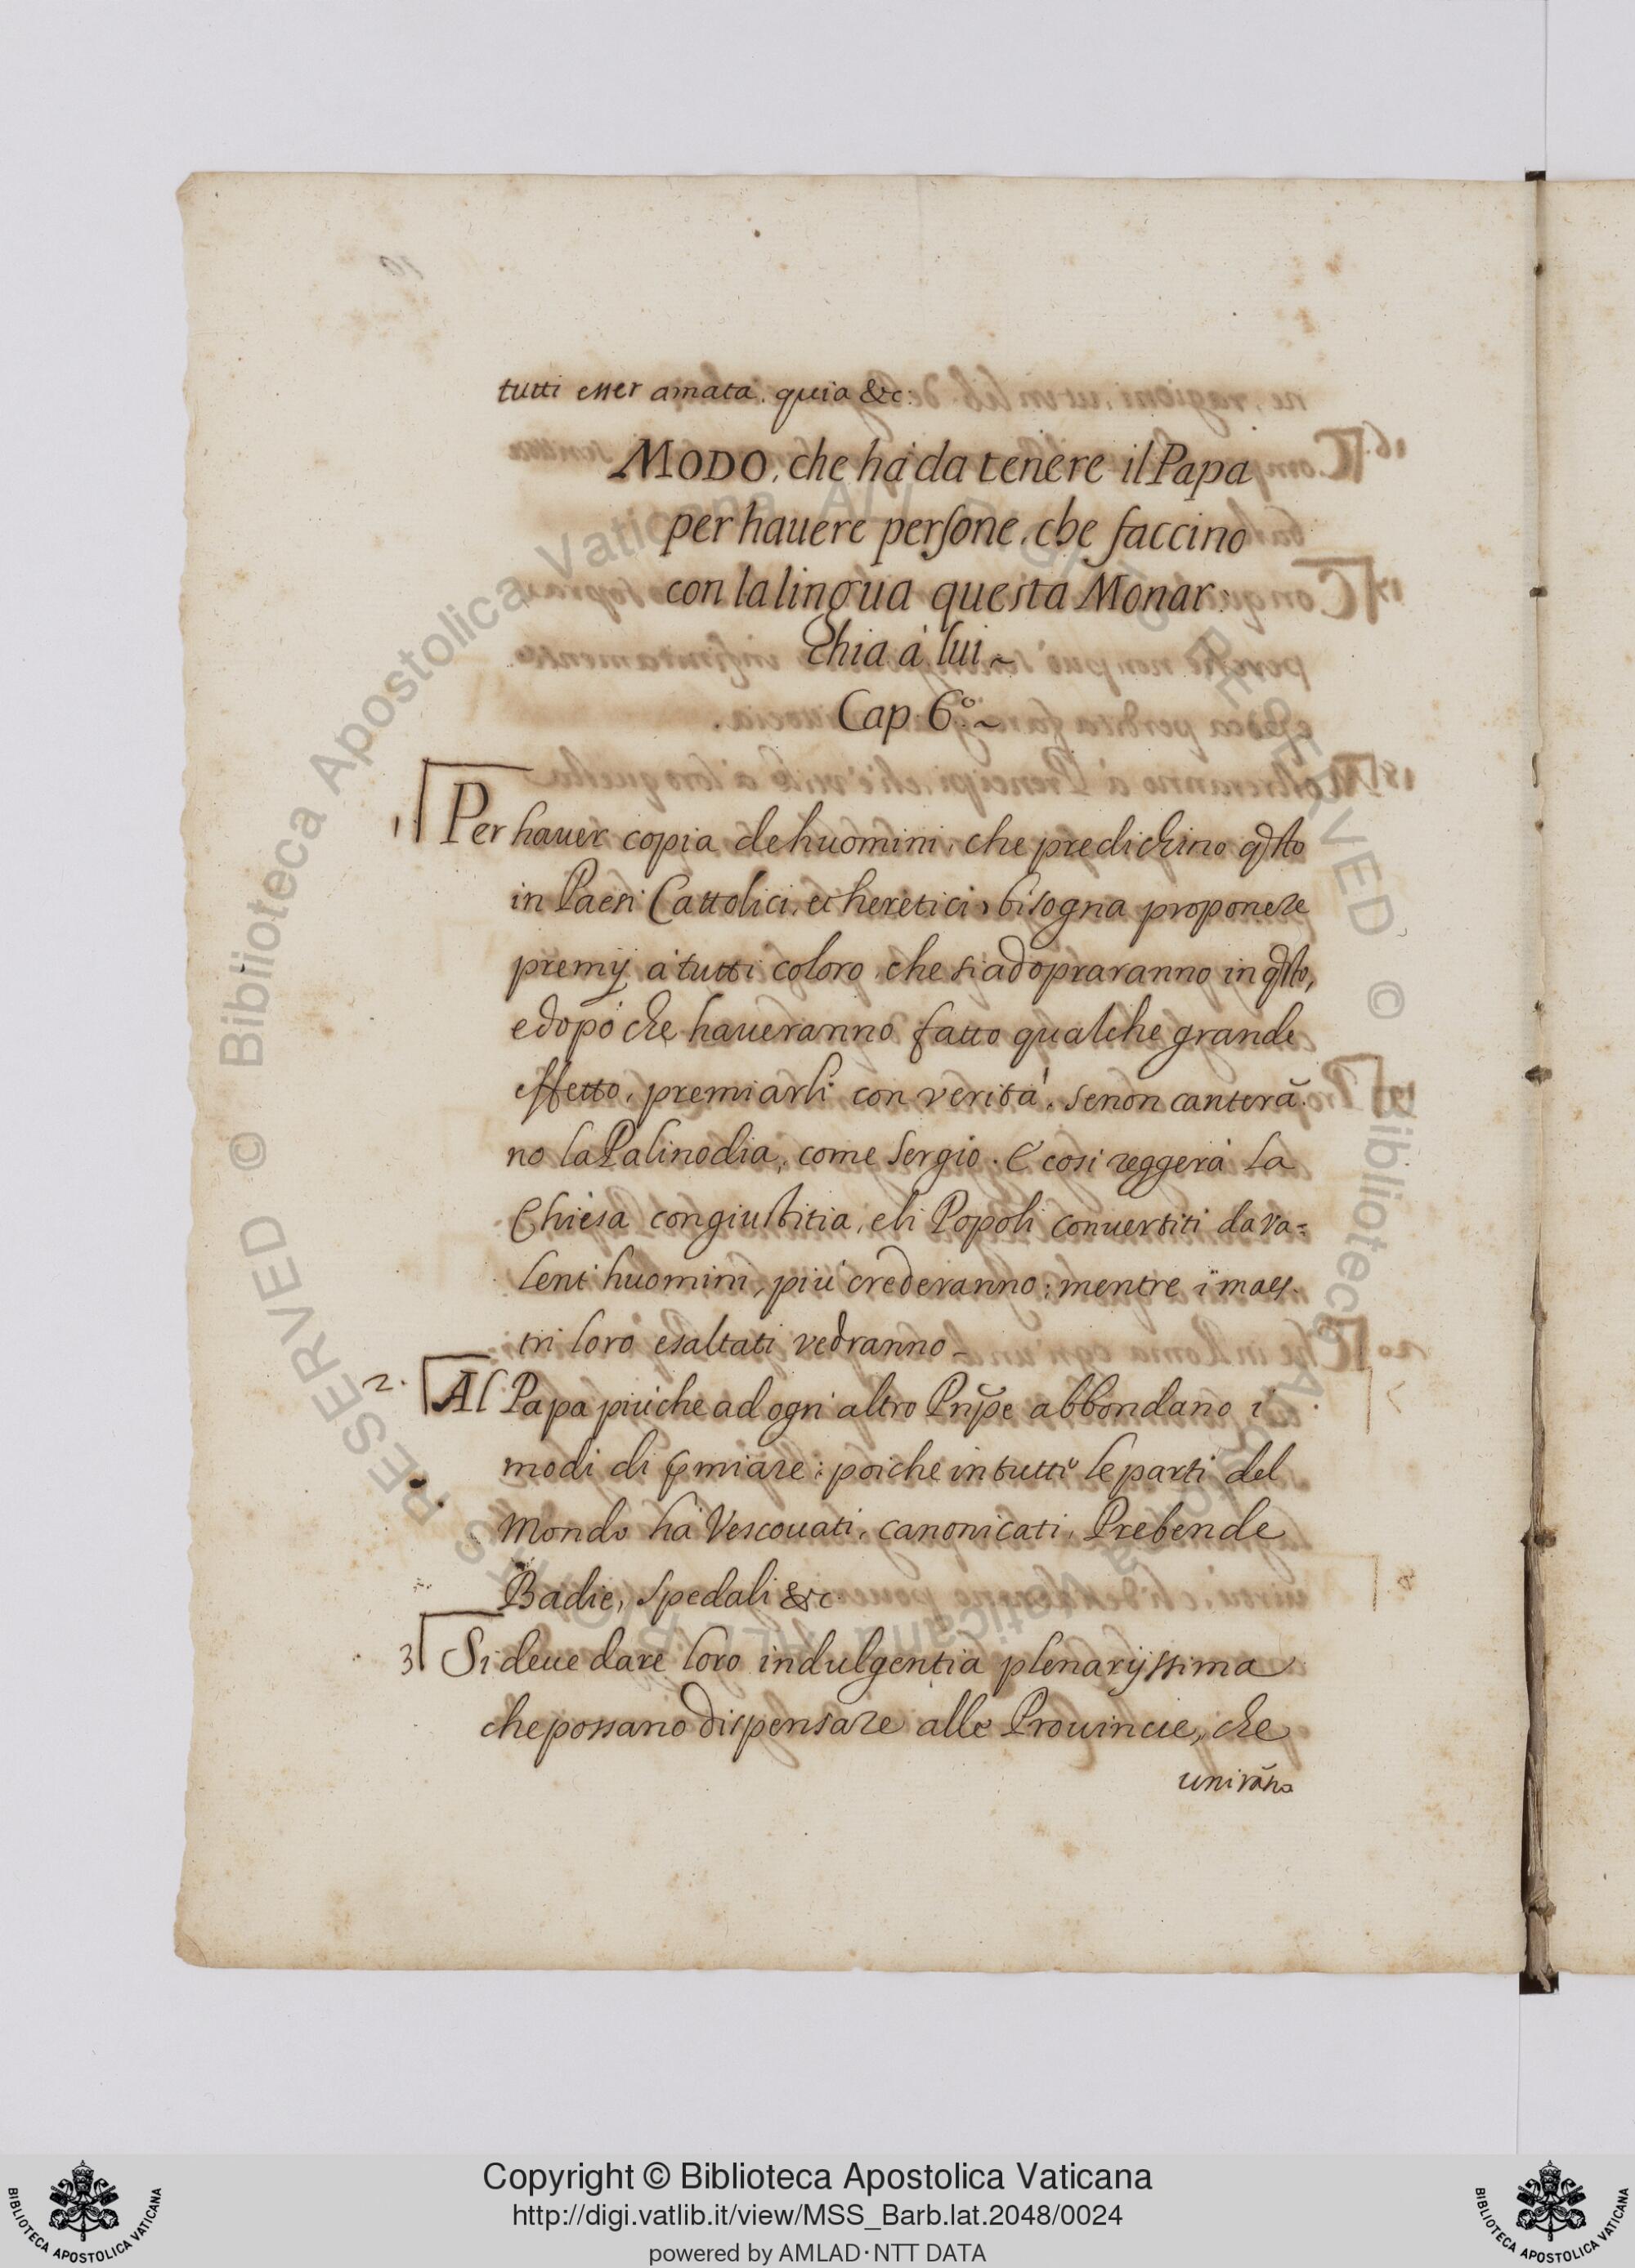 tutti esser amata. quia &c:
MODO, che ha' da tenere il Papa
per hauere persone, che faccino
con la lingua questa Monar:
chia à lui ~
Cap. 6.° ~
1. Per hauer copia de huomini, che predichino q̃sto
in Paesi Cattolici, et heretici, bisogna proponere
premij à tutti coloro che si adopraranno in q̃sto,
e dopò che haueranno fatto qualche grande
effetto, premiarli con verità. Se non canterã.
no la Palinodia, come Sergio. E cosi reggerà la
Chiesa con giustitia, e li Popoli conuertiti da va=
lent' huomini, più crederanno; mentre i maes.
tri loro esaltati vedranno_
2. Al Papa più che ad ogni altro Prip̃e abbondano i
modi di p̃miare: poiche in tutti le parti del
Mondo ha Vescouati, canonicati, Prebende
Badie, Spedali &c
3 Si deue dare loro indulgentia plenarijssima
che possano dispensare alle Prouincie, che
unirãno
Biblioteca Apostolica Vaticana
Copyright © Biblioteca Apostolica Vaticana
http://digi.vatlib.it/view/MSS_Barb.lat.2048/0024
powered by AMLAD·NTT DATA
BIBLIOTECA APOSTOLICA VATICANA
BIBLIOTECA APOSTOLICA VATICANA